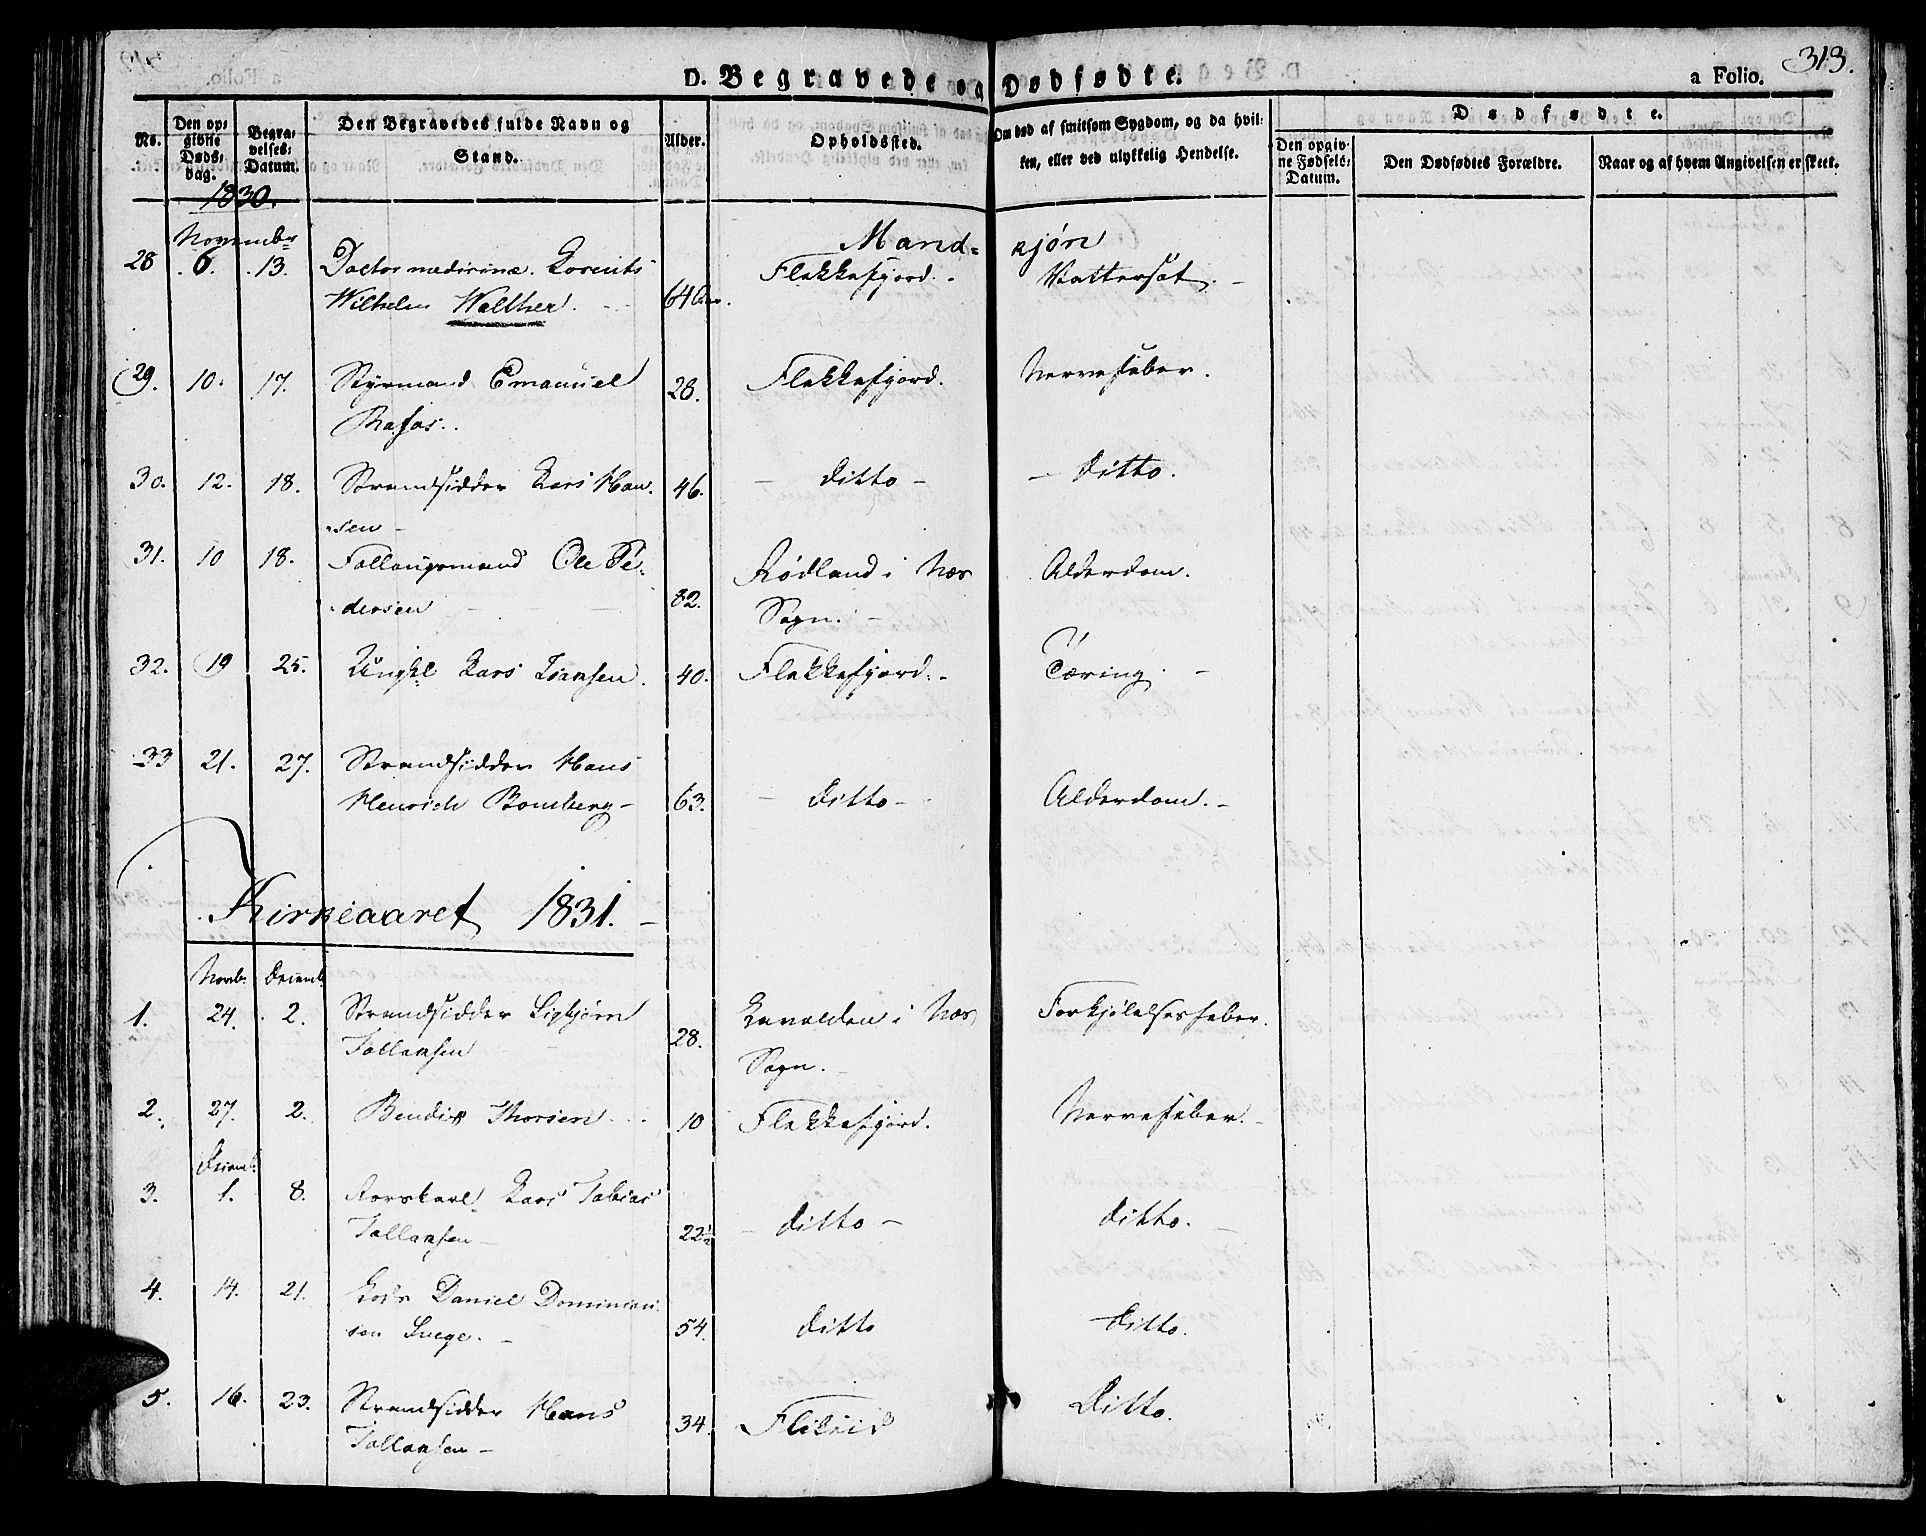 313.
D. Begravede og Dødfødte.
a Folio.
No.
Den opgivne Døds-dag.
Begravelses-Datum.
Den Begravedes fulde Navn og Stand.
Alder.
Opholdssted.
Om død af smitsom Sygdom, og da hvilken, eller ved ulykkelig Hendelse.
Dødfødte.
Den opgivne Fødsels-Datum.
Den Dødfødtes Forældre.
Naar og af hvem Angivelsen er skeet.
1830.
Novembr
Mandkjøn
28 6. 13. Doctor medicinæ Lorents Flekkefjord. Vattersot.
Wilhelm Walther. 64 Aar.
29. 10. 17. Styrmand Emanuel 28. Flekkefjord. Nervefeber.
30. 12. 18. Strandsidder Lars Han- 46. Ditto Ditto.
sen
31. 10 18. Ole Pe- Rødland i Næs Alderdom.
dersen 82. Sogn.
32. 19 25. Ungkl Lars 40. Flekkefjord. Tæring.
33 21. 27. Strandsidder Hans
Henrich Bomberg 63. Ditto Alderdom.
Kirkeaaret 1831.
Novb. Decemb.
1. 24. 2. Strandsidder Sigbjørn i Næs Forkjølelsesfeber.
Tollaksen 28. Sogn.
2. 27. 2. Bendix Thorsen 10 Flekkefjord. Nervefeber.
Decemb.
3. 1. 8. Lars Tobias
Tollaksen 22½ Ditto Ditto.
4. 14. 21. Lods Daniel Dominicu-
sen 54. Ditto Ditto.
5. 16. 23. Strandsidder Hans
Tollaksen 34. Flikeid Ditto.